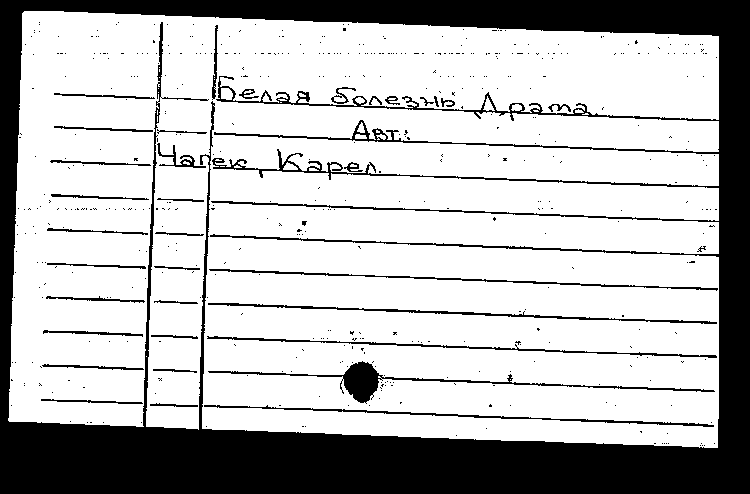 Белая болезнь. Драма.
Авт.:
Чапек, Карел.